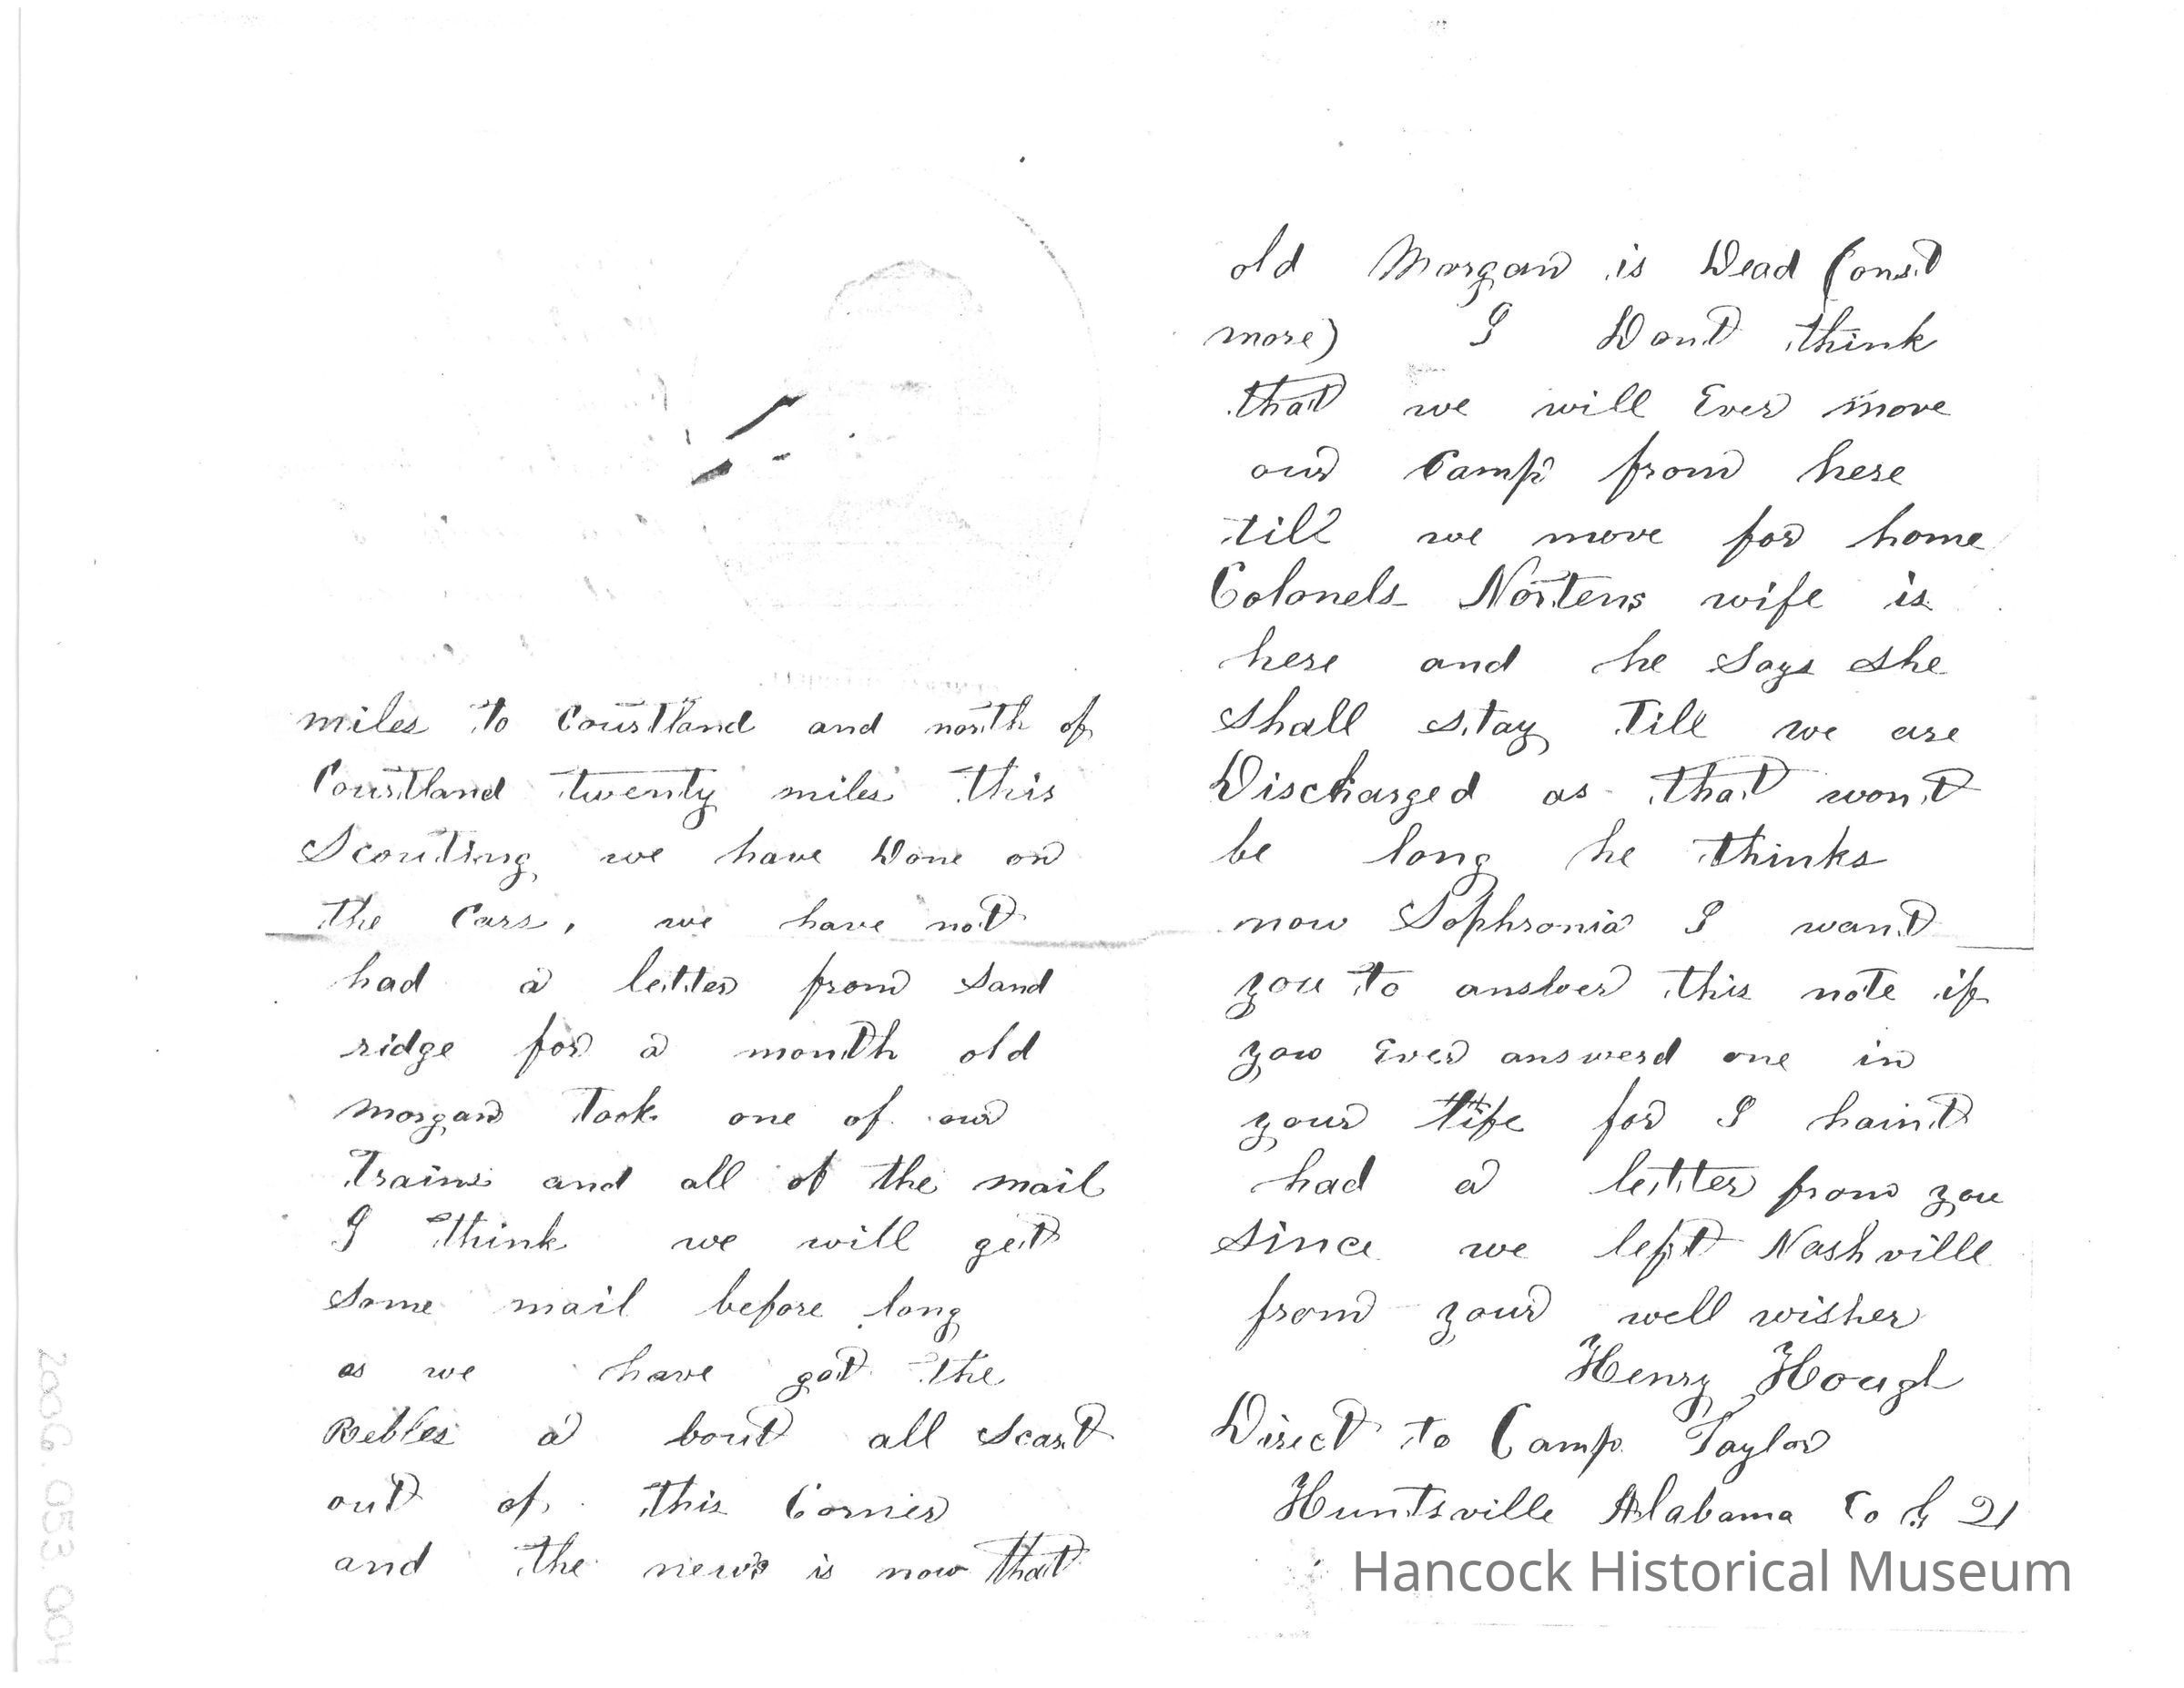 miles to Courtland and north of
Courtland twenty miles this
Scouting we have Done on
the Cars, we have not
had a letter from Sand
ridge for a month old
Morgan Took one of our
Trains and all of the mail
I think we will get
Some mail before long
as we have got the
Rebles a bout all Scart
out of this Corner
and the news is now that
old Morgan is Dead (onst
more) I Dont think
that we will Ever move
our Camp from here
till we move for home
Colonels Nortens wife is
here and he Says She
Shall Stay Till we are
Discharged as that wont
be long he thinks
now Sophronia I want
you to answer this note if
you Ever answerd one in
your life for I haint
had a letter from you
since we left Nashville
from your well wisher
Henry Hough
Direct to Camp Taylor
Huntsville Alabama Co G 21
Hancock Historical Museum
2006.053.004